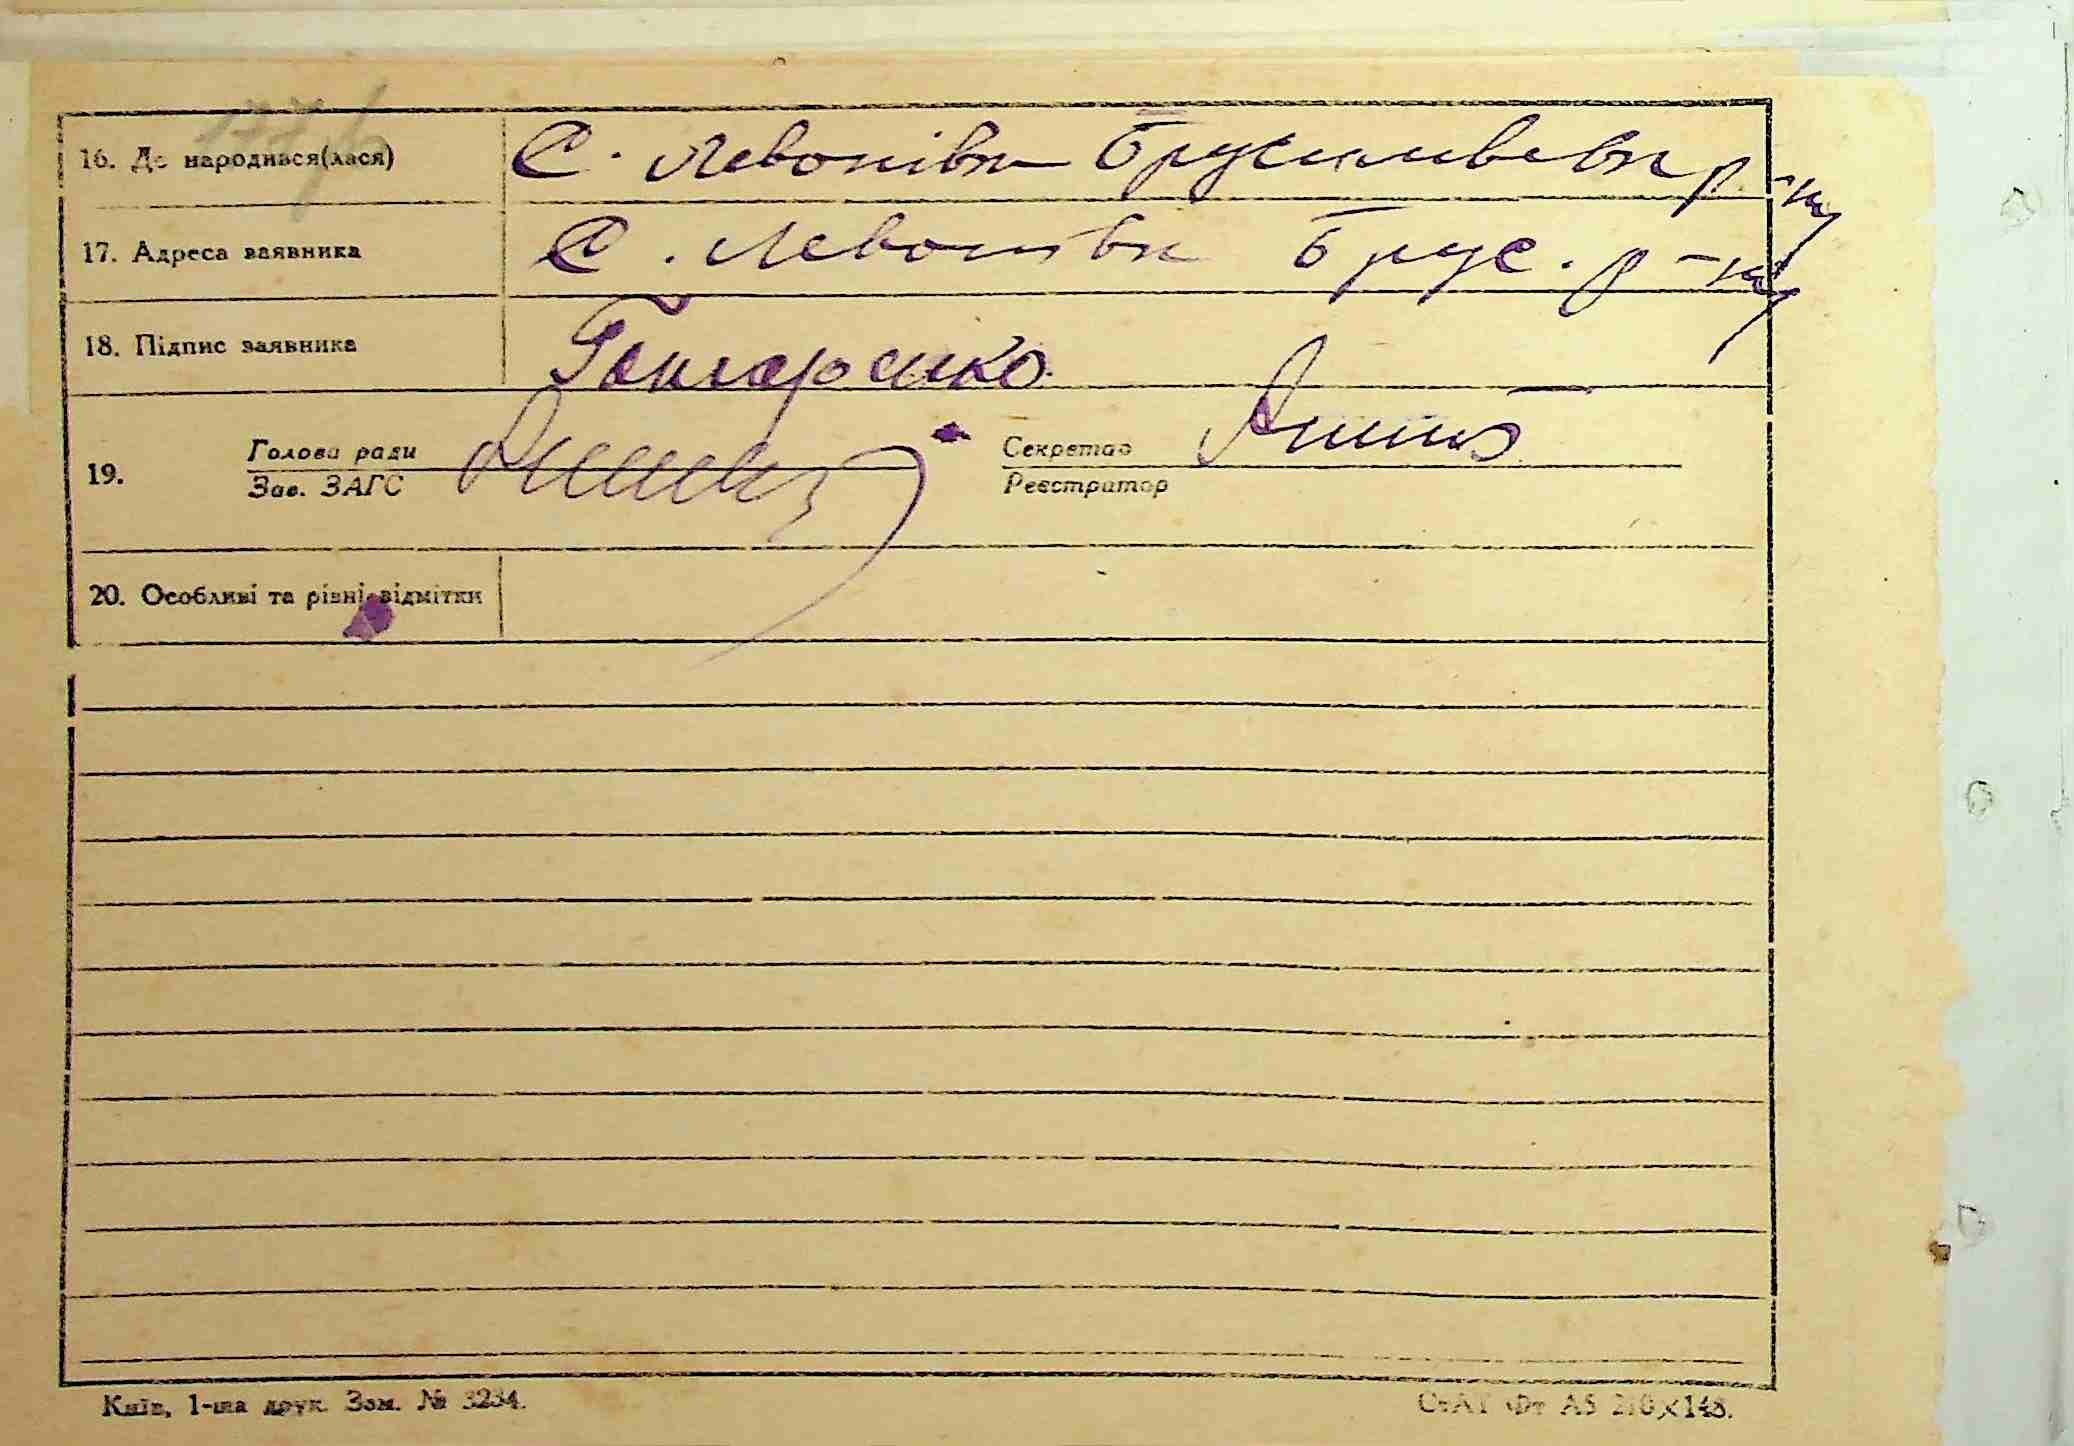 16. Де народився(лася) С. Левонівка Брусилівська р-ну
17. Адреса заявника С. Левонівка Брус. р-ну
18. Підпис заявника Гончаренко
19. Голова ради Секретар
Зав. ЗАГС Реєстратор
20. Особливі та різні відмітки
Київ, 1-ша друк. Зам. № 3234. СтАТ Фт А5 210×148.